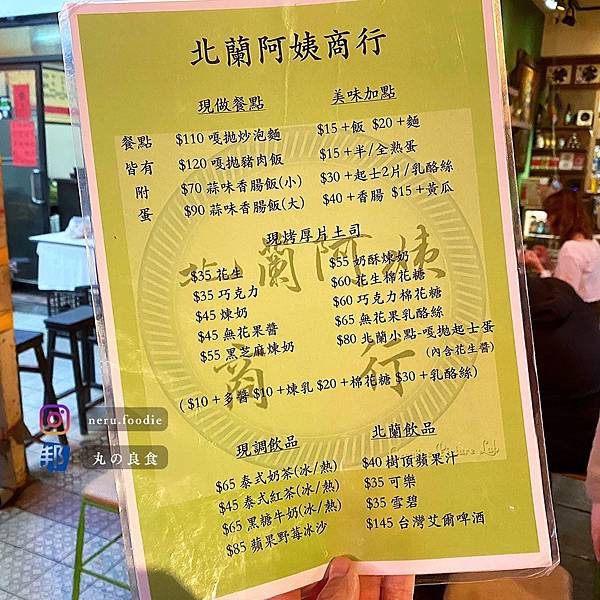 北蘭阿姨商行
現做餐點
餐點皆有附蛋
$110 嘎拋炒泡麵
$120 嘎拋豬肉飯
$70 蒜味香腸飯(小)
$90 蒜味香腸飯(大)
美味加點
$15+飯 $20+麵
$15+半/全熟蛋
$30+起士2片/乳酪絲
$40+香腸 $15+黃瓜
現烤厚片土司
$35 花生
$35 巧克力
$45 煉奶
$45 無花果醬
$55 黑芝麻煉奶
$55 奶酥煉奶
$60 花生棉花糖
$60 巧克力棉花糖
$65 無花果乳酪絲
$80 北蘭小點-嘎拋起士蛋
(內含花生醬)
( $10+多醬 $10+煉乳 $20+棉花糖 $30+乳酪絲)
現調飲品
$65 泰式奶茶(冰/熱)
$45 泰式紅茶(冰/熱)
$65 黑糖牛奶(冰/熱)
$85 蘋果野莓冰沙
北蘭飲品
$40 樹頂蘋果汁
$35 可樂
$35 雪碧
$145 台灣艾爾啤酒
北蘭阿姨
商行
neru.foodie
邦 丸の良食